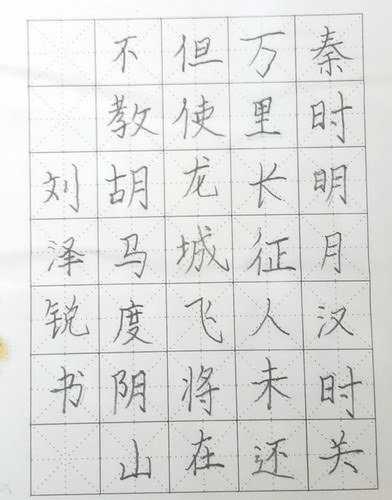 秦时明月汉时关
万里长征人未还
但使龙城飞将在
不教胡马度阴山
刘泽锐书